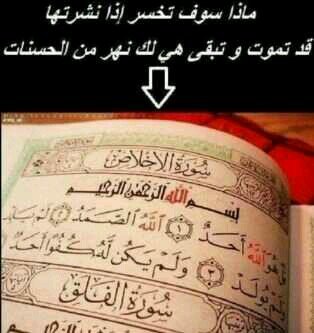 ماذا سوف تخسر إذا نشرتها
قد تموت و تبقى هي لك نهر من الحسنات
سُورَةُ الإِخْلَاصِ
بِسْمِ اللَّهِ الرَّحْمَٰنِ الرَّحِيمِ
قُلْ هُوَ اللَّهُ أَحَدٌ ١ اللَّهُ الصَّمَدُ ٢ لَمْ يَلِدْ
وَلَمْ يُولَدْ ٣ وَلَمْ يَكُن لَّهُ كُفُوًا أَحَدٌ
سُورَةُ الْفَلَقِ